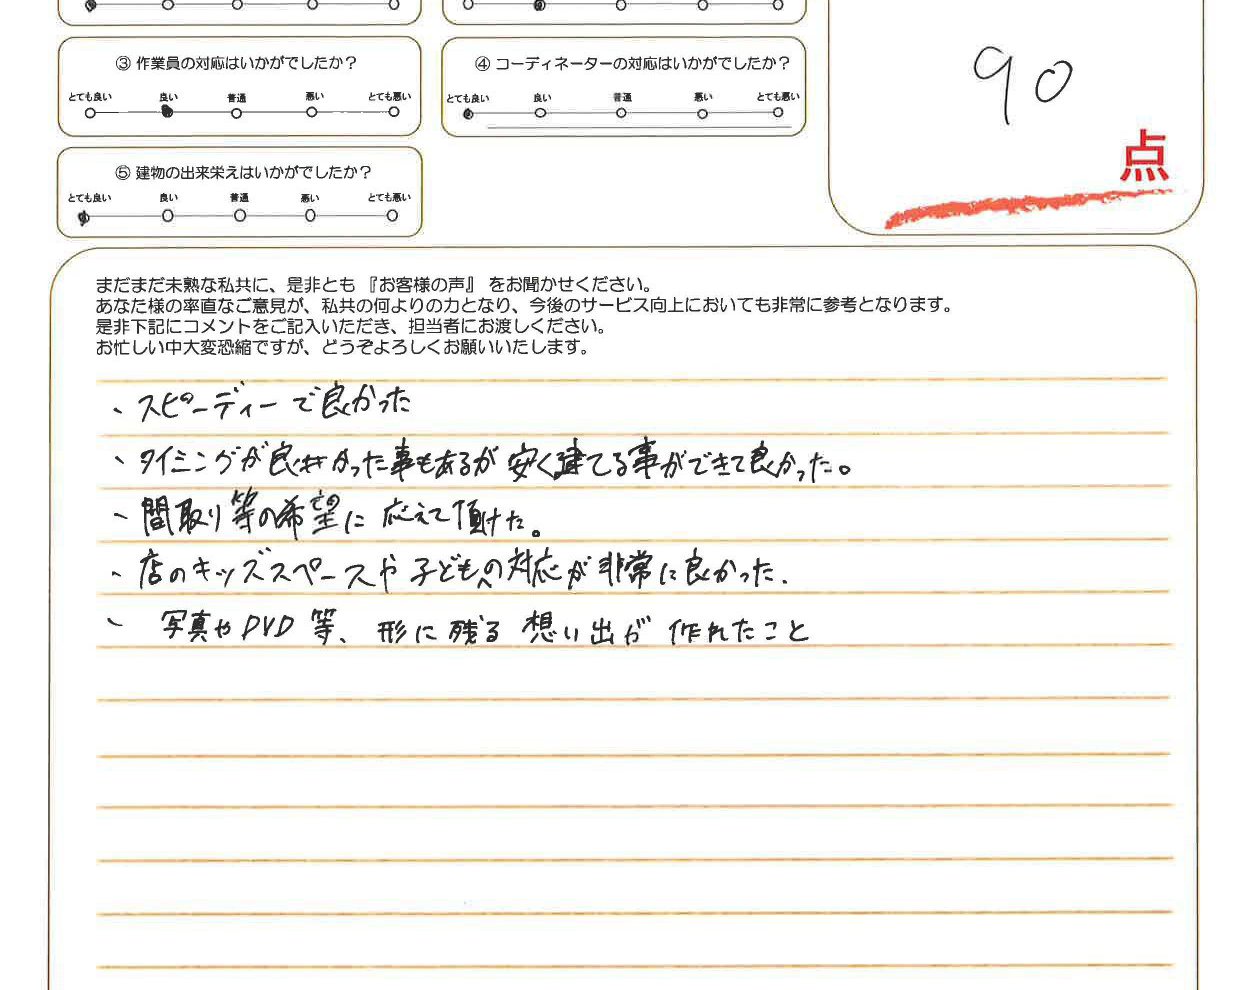 ③ 作業員の対応はいかがでしたか？
とても良い 良い 普通 悪い とても悪い
④ コーディネーターの対応はいかがでしたか？
とても良い 良い 普通 悪い とても悪い
⑤ 建物の出来栄えはいかがでしたか？
とても良い 良い 普通 悪い とても悪い
90
点
まだまだ未熟な私共に、是非とも『お客様の声』をお聞かせください。
あなた様の率直なご意見が、私共の何よりの力となり、今後のサービス向上においても非常に参考となります。
是非下記にコメントをご記入いただき、担当者にお渡しください。
お忙しい中大変恐縮ですが、どうぞよろしくお願いいたします。
、スピーディーで良かった
、タイミングが良かった事もあるが安く建てる事ができて良かった。
、間取り等の希望に応えて頂けた。
、店のキッズスペースや子どもへの対応が非常に良かった.
、写真やDVD等、形に残る想い出が作れたこと